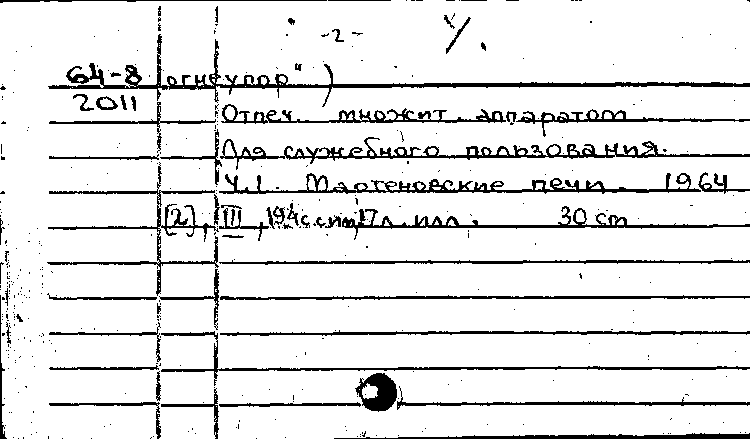 -2- V/.
64-8 огнеупор")
2011 Отпеч. множит. аппаратом
Для служебного пользования.
Ч.1. Мартеновские печи. 1964
[2], III, 194с. с ил., 17 л. илл. 30 cm